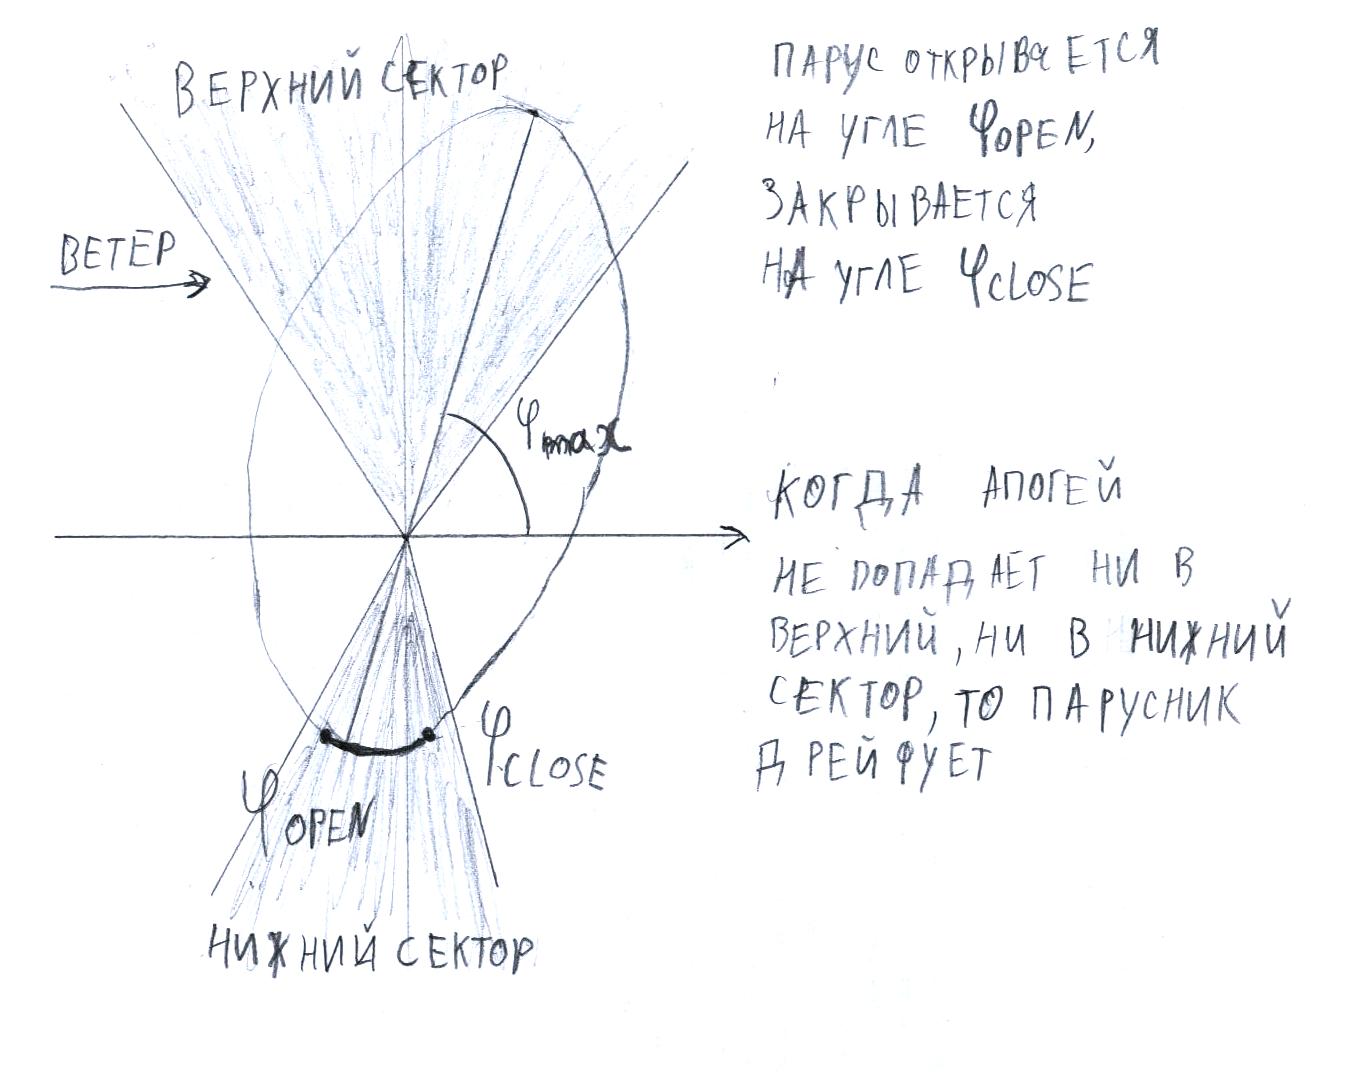 ВЕРХНИЙ СЕКТОР
ВЕТЕР
φmax
φOPEN
φCLOSE
НИЖНИЙ СЕКТОР
ПАРУС ОТКРЫВАЕТСЯ
НА УГЛЕ φOPEN,
ЗАКРЫВАЕТСЯ
НА УГЛЕ φCLOSE
КОГДА АПОГЕЙ
НЕ ПОПАДАЕТ НИ В
ВЕРХНИЙ, НИ В НИЖНИЙ
СЕКТОР, ТО ПАРУСНИК
ДРЕЙФУЕТ